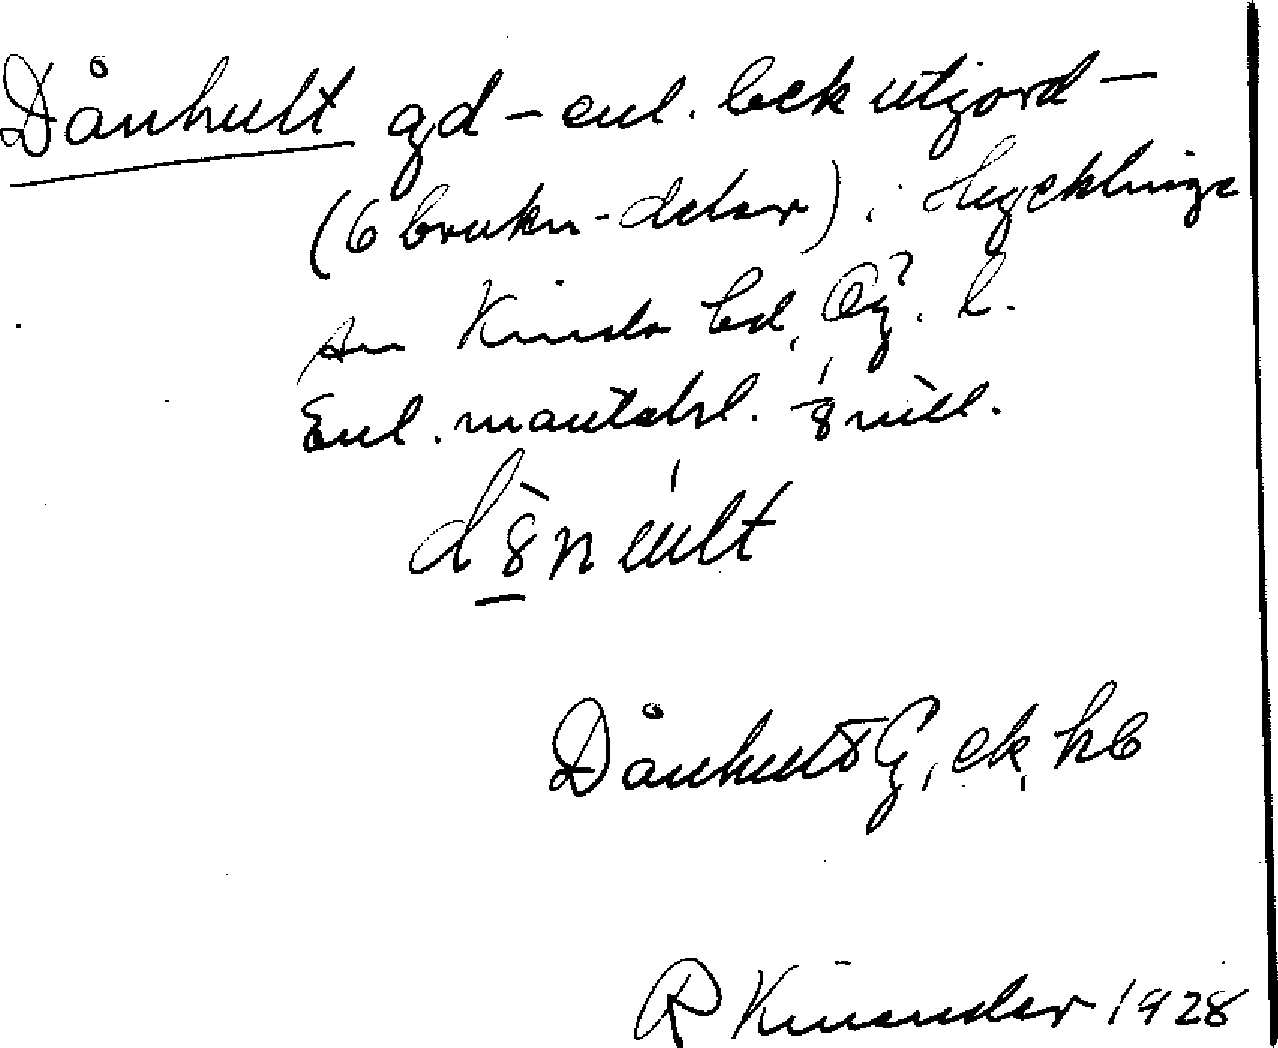 Dånhult gd – enl. lbek utjord –
(6 brukn-delar) i Hycklinge
sn Kinda hd, Ög. l.
Enl. mantalsl. 1/8 mtl.
Dånhult G, ek, hb
R Kinander 1928